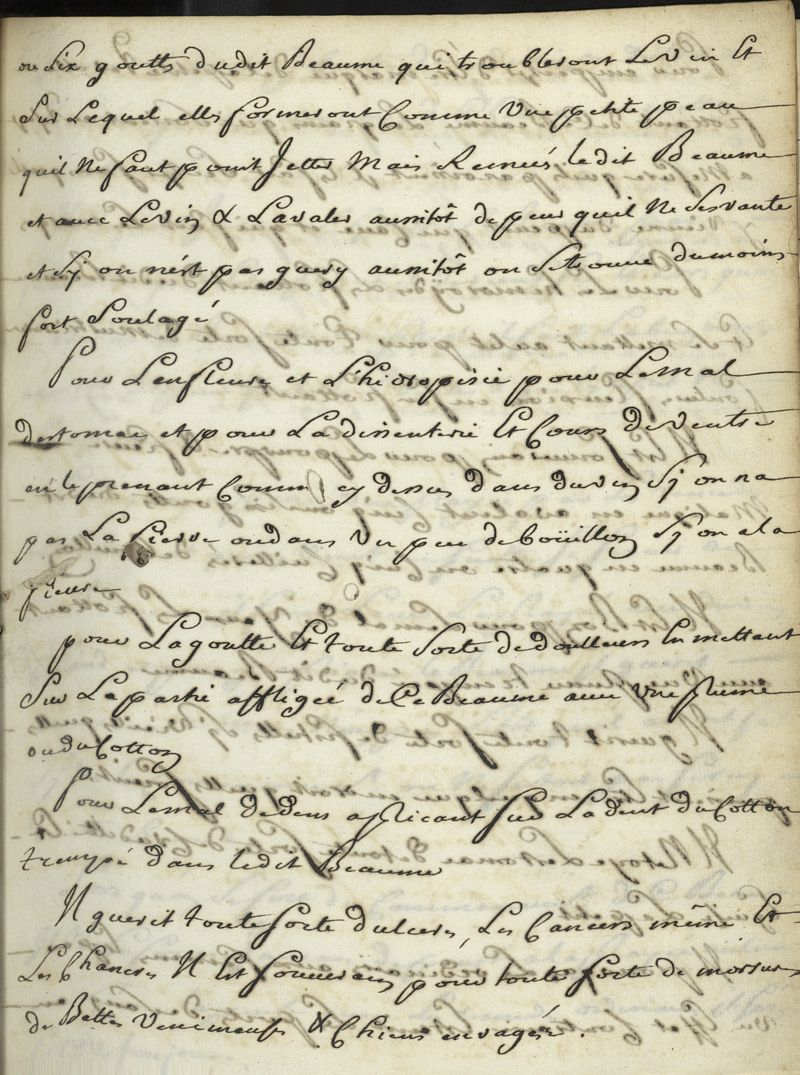 ou Six gouttes dudit Beaume qui troubleront Le Vin Et
Sur Lequel elles formeront Comme Une petite peau
quil Ne faut point Jetter Mais Remués ledit Beaume
et avec Levin & Lavaler aussitôt de peur quil Ne Sesvante
et Sy on nest pas guery aussitôt on Se trouve dumoins
fort Soulagé
Pour Lenfleure et L'hidropisie pour Lemal
destomac et pour La dissenterie Et Cours de Ventre
en leprenant Comme cy dessus dans duvin Sy on na
pas La fievre oudans Un peu de boüillon Sy on a la
fievre
pour Lagoutte Et toute Sorte dedoulleurs En mettant
Sur Lapartie affligée deCeBeaume avec Une plume
ou du Cotton
Pour Lemal dedens aplicant Sur Ladent du Cotton
trempé dans ledit Beaume
Il guerit toute Sorte dulceres, Les Cancers même Et
Les Chancres Il Est Souverain pour toute Sorte de morsures
de Bettes Venimeuses & Chiens enragés.